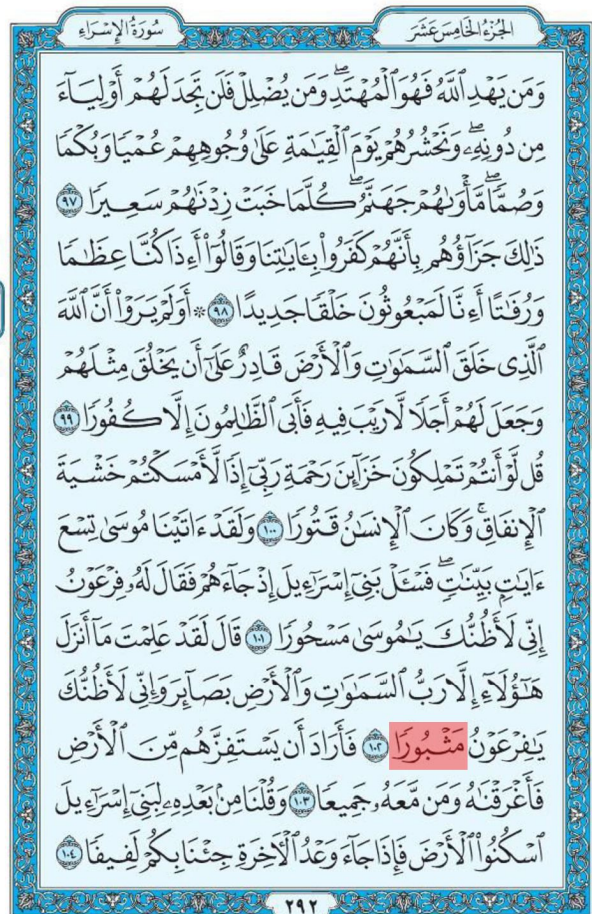 الجُزْءُ الخَامِسَ عَشَرَ
سُورَةُ الإِسْرَاءِ
وَمَن يَهْدِ ٱللَّهُ فَهُوَ ٱلْمُهْتَدِۖ وَمَن يُضْلِلْ فَلَن تَجِدَ لَهُمْ أَوْلِيَآءَ
مِن دُونِهِۦۖ وَنَحْشُرُهُمْ يَوْمَ ٱلْقِيَٰمَةِ عَلَىٰ وُجُوهِهِمْ عُمْيًا وَبُكْمًا
وَصُمًّاۖ مَّأْوَىٰهُمْ جَهَنَّمُۖ كُلَّمَا خَبَتْ زِدْنَٰهُمْ سَعِيرًا ٩٧
ذَٰلِكَ جَزَآؤُهُم بِأَنَّهُمْ كَفَرُوا۟ بِـَٔايَٰتِنَا وَقَالُوٓا۟ أَءِذَا كُنَّا عِظَٰمًا
وَرُفَٰتًا أَءِنَّا لَمَبْعُوثُونَ خَلْقًا جَدِيدًا ٩٨ ۞ أَوَلَمْ يَرَوْا۟ أَنَّ ٱللَّهَ
ٱلَّذِى خَلَقَ ٱلسَّمَٰوَٰتِ وَٱلْأَرْضَ قَادِرٌ عَلَىٰٓ أَن يَخْلُقَ مِثْلَهُمْ
وَجَعَلَ لَهُمْ أَجَلًا لَّا رَيْبَ فِيهِ فَأَبَى ٱلظَّٰلِمُونَ إِلَّا كُفُورًا ٩٩
قُل لَّوْ أَنتُمْ تَمْلِكُونَ خَزَآئِنَ رَحْمَةِ رَبِّىٓ إِذًا لَّأَمْسَكْتُمْ خَشْيَةَ
ٱلْإِنفَاقِۚ وَكَانَ ٱلْإِنسَٰنُ قَتُورًا ١٠٠ وَلَقَدْ ءَاتَيْنَا مُوسَىٰ تِسْعَ
ءَايَٰتٍۭ بَيِّنَٰتٍۖ فَسْـَٔلْ بَنِىٓ إِسْرَٰٓءِيلَ إِذْ جَآءَهُمْ فَقَالَ لَهُۥ فِرْعَوْنُ
إِنِّى لَأَظُنُّكَ يَٰمُوسَىٰ مَسْحُورًا ١٠١ قَالَ لَقَدْ عَلِمْتَ مَآ أَنزَلَ
هَٰٓؤُلَآءِ إِلَّا رَبُّ ٱلسَّمَٰوَٰتِ وَٱلْأَرْضِ بَصَآئِرَ وَإِنِّى لَأَظُنُّكَ
يَٰفِرْعَوْنُ مَثْبُورًا ١٠٢ فَأَرَادَ أَن يَسْتَفِزَّهُم مِّنَ ٱلْأَرْضِ
فَأَغْرَقْنَٰهُ وَمَن مَّعَهُۥ جَمِيعًا ١٠٣ وَقُلْنَا مِنۢ بَعْدِهِۦ لِبَنِىٓ إِسْرَٰٓءِيلَ
ٱسْكُنُوا۟ ٱلْأَرْضَ فَإِذَا جَآءَ وَعْدُ ٱلْءَاخِرَةِ جِئْنَا بِكُمْ لَفِيفًا ١٠٤
٢٩٢